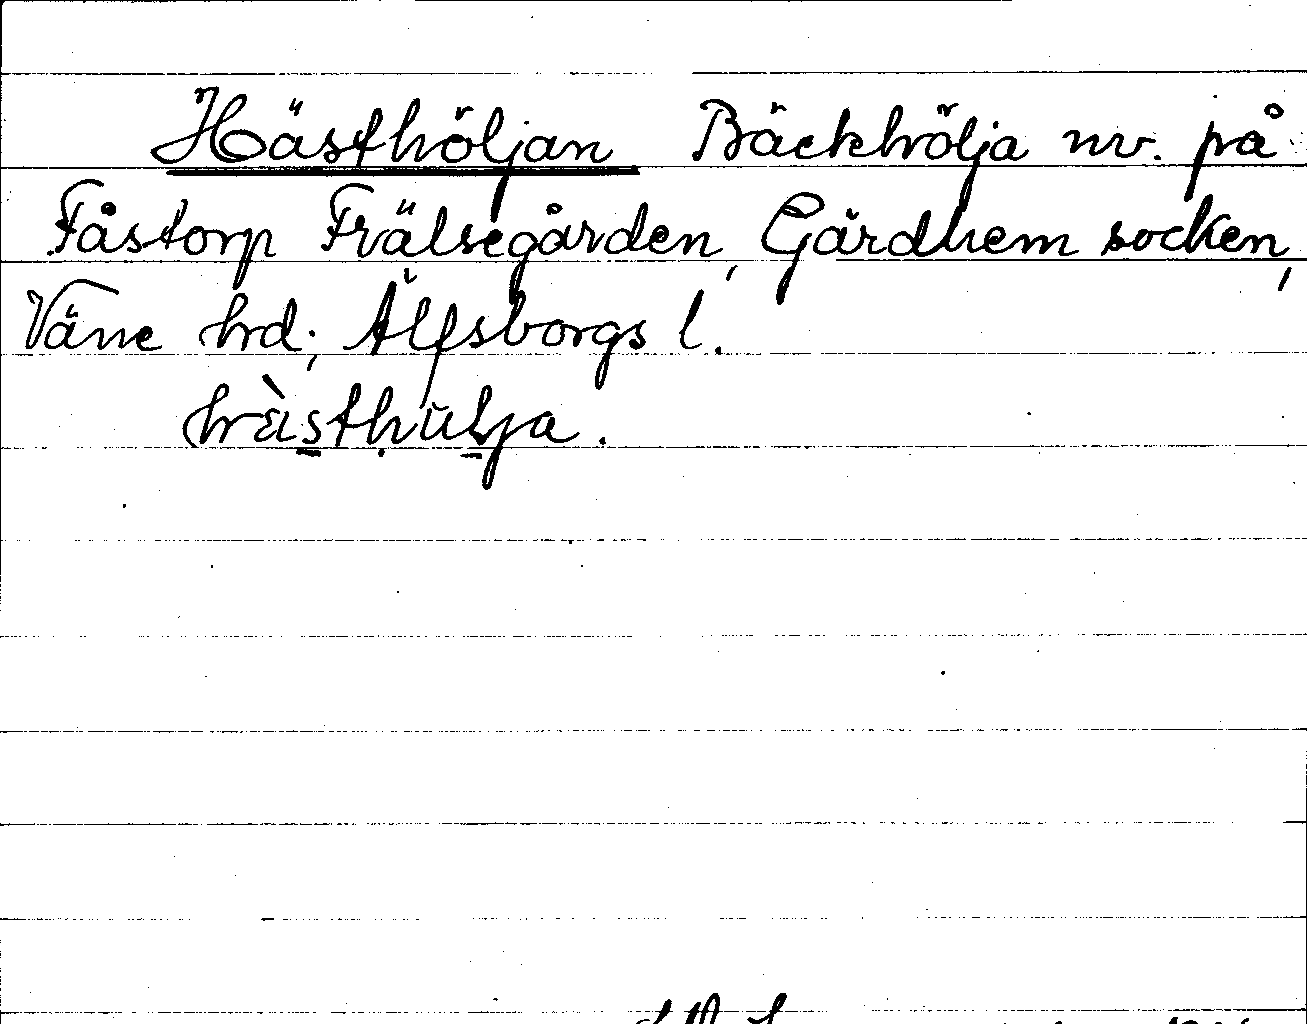 Hästhöljan Bäckhölja nv. på
Fåstorp Frälsegården, Gärdhem socken,
Väne hrd; Älfsborgs l.
hàsthulja.